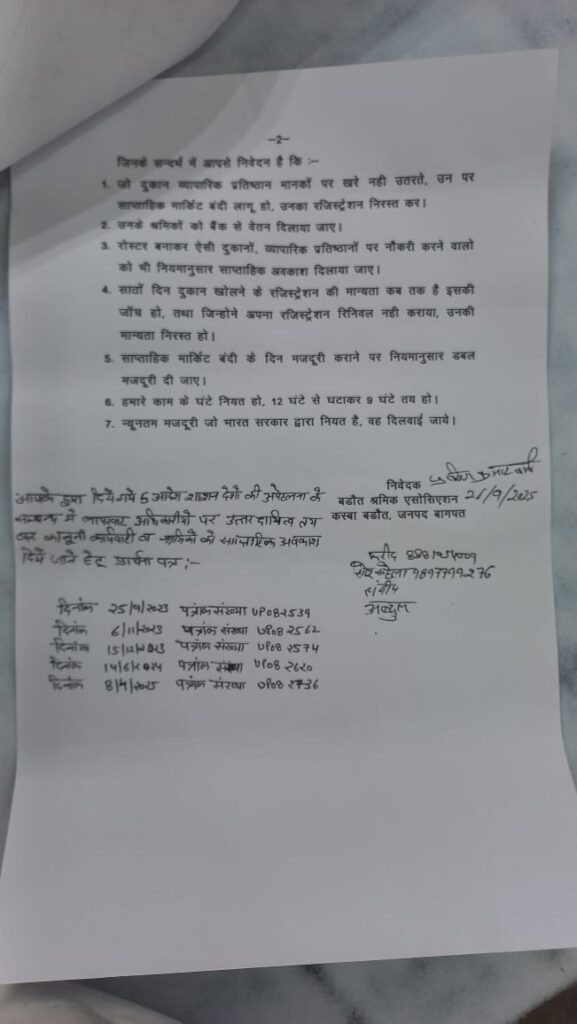 –2–
जिनके सन्दर्भ में आपसे निवेदन है कि :–
1. जो दुकान व्यापारिक प्रतिष्ठान मानकों पर खरे नही उतरते, उन पर
साप्ताहिक मार्किट बंदी लागू हो, उनका रजिस्ट्रेशन निरस्त कर।
2. उनके श्रमिकों को बैंक से वेतन दिलाया जाए।
3. रोस्टर बनाकर ऐसी दुकानों, व्यापारिक प्रतिष्ठानों पर नौकरी करने वालो
को भी नियमानुसार साप्ताहिक अवकाश दिलाया जाए।
4. सातों दिन दुकान खोलने के रजिस्ट्रेशन की मान्यता कब तक है इसकी
जाँच हो, तथा जिन्होने अपना रजिस्ट्रेशन रिनिवल नही कराया, उनकी
मान्यता निरस्त हो।
5. साप्ताहिक मार्किट बंदी के दिन मजदूरी कराने पर नियमानुसार डबल
मजदूरी दी जाए।
6. हमारे काम के घंटे नियत हो, 12 घंटे से घटाकर 9 घंटे तय हो।
7. न्यूनतम मजदूरी जो भारत सरकार द्वारा नियत है, वह दिलवाई जाये।
निवेदक
बडौत श्रमिक एसोसिएशन 26/9/2025
कस्बा बडौत, जनपद बागपत
आपके द्वारा दिये गये 5 आदेश शासन देशो की अवेहलना के
सम्बन्ध में लापरवाह अधिकारीयो पर उत्तर दायित्व तय
कर कानूनी कार्यवाही व श्रमिको को साप्ताहिक अवकाश
दिये जाने हेतु प्रार्थना पत्र :–
9897799276
संदीप
अब्दुल
दिनांक 25/9/2023 पत्रांक संख्या UP082539
दिनांक 6/11/2023 पत्रांक संख्या UP082562
दिनांक 15/12/2023 पत्रांक संख्या UP082574
दिनांक 14/6/2024 पत्रांक संख्या UP082620
दिनांक 8/4/2025 पत्रांक संख्या UP082736